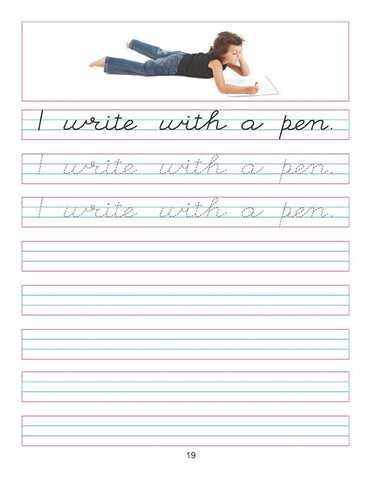 I write with a pen.
I write with a pen.
I write with a pen.
19